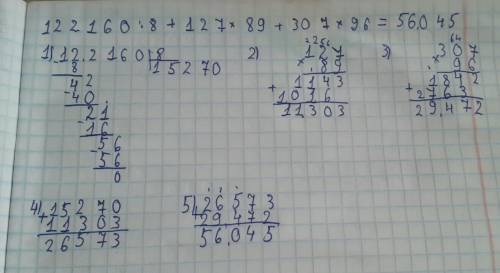 122160:8+127×89+307×96=56.045
1) 12.2160 8
8 15270
42
-40
21
-16
56
-56
0
2) 2256
127
×.89
1143
+1016
11303
3) 64
307
×.96
1842
+2763
29.472
4) 15270
+11303
26573
5) 26573
+29472
56.045